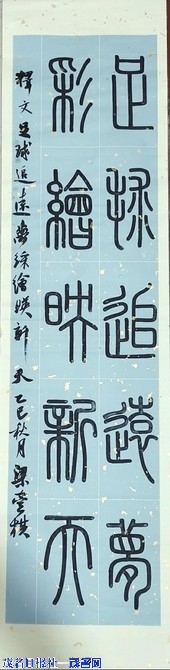 足球追遠夢
彩繪映新天
釋文 足球追遠夢 彩繪映新天 乙巳秋月 梁
茂名日报社—茂名网